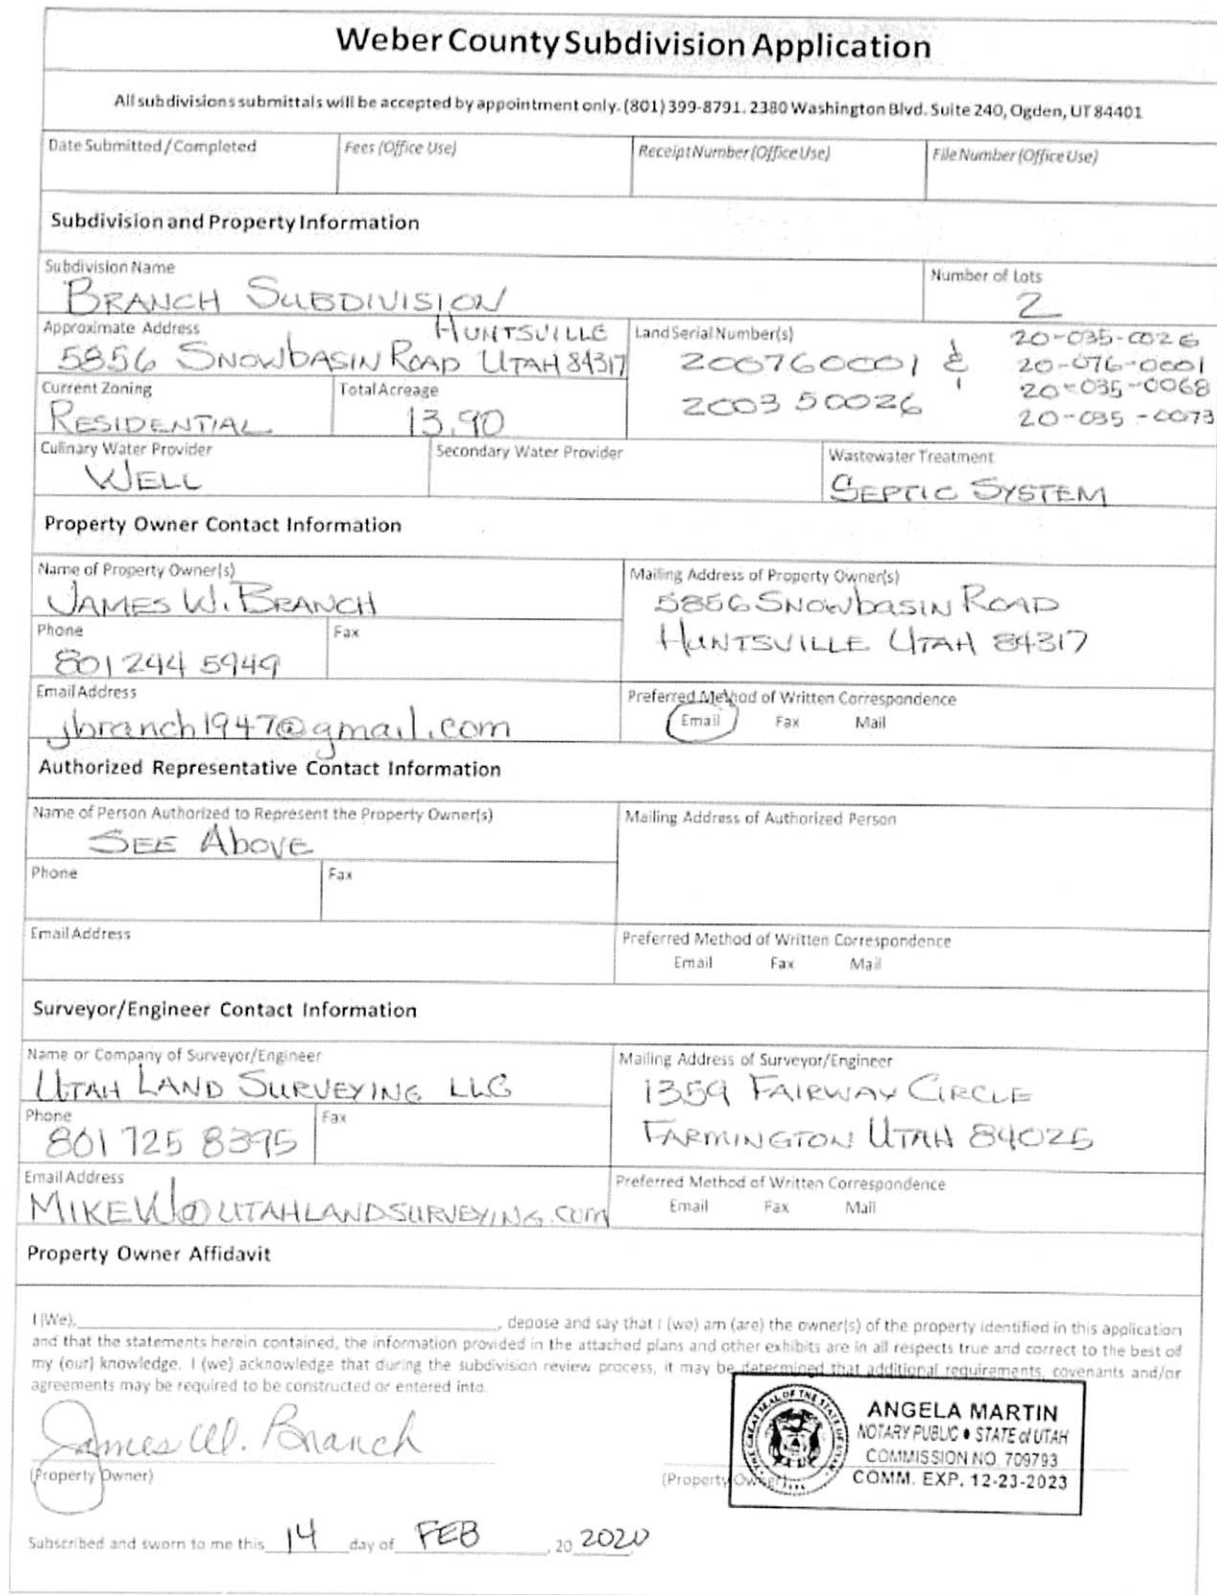 Weber County Subdivision Application
All subdivisions submittals will be accepted by appointment only. (801) 399-8791. 2380 Washington Blvd. Suite 240, Ogden, UT 84401
Date Submitted / Completed
Fees (Office Use)
Receipt Number (Office Use)
File Number (Office Use)
Subdivision and Property Information
Subdivision Name
BRANCH SUBDIVISION
Number of Lots
2
Approximate Address
HUNTSVILLE
5856 SNOWBASIN ROAD UTAH 84317
Land Serial Number(s)
200760001 &
200350026
20-035-0026
20-076-0001
20-035-0068
20-035-0073
Current Zoning
RESIDENTIAL
Total Acreage
13.90
Culinary Water Provider
WELL
Secondary Water Provider
Wastewater Treatment
SEPTIC SYSTEM
Property Owner Contact Information
Name of Property Owner(s)
JAMES W. BRANCH
Mailing Address of Property Owner(s)
5856 SNOWBASIN ROAD
HUNTSVILLE UTAH 84317
Phone
801 244 5949
Fax
Email Address
jbranch1947@gmail.com
Preferred Method of Written Correspondence
Email Fax Mail
Authorized Representative Contact Information
Name of Person Authorized to Represent the Property Owner(s)
SEE ABOVE
Mailing Address of Authorized Person
Phone
Fax
Email Address
Preferred Method of Written Correspondence
Email Fax Mail
Surveyor/Engineer Contact Information
Name or Company of Surveyor/Engineer
UTAH LAND SURVEYING LLC
Mailing Address of Surveyor/Engineer
1359 FAIRWAY CIRCLE
FARMINGTON UTAH 84025
Phone
801 725 8395
Fax
Email Address
MIKEW@UTAHLANDSURVEYING.COM
Preferred Method of Written Correspondence
Email Fax Mail
Property Owner Affidavit
I (We), , depose and say that I (we) am (are) the owner(s) of the property identified in this application
and that the statements herein contained, the information provided in the attached plans and other exhibits are in all respects true and correct to the best of
my (our) knowledge. I (we) acknowledge that during the subdivision review process, it may be determined that additional requirements, covenants and/or
agreements may be required to be constructed or entered into.
James W. Branch
(Property Owner)
(Property Owner)
THE GREAT SEAL OF THE STATE OF UTAH
1896
ANGELA MARTIN
NOTARY PUBLIC • STATE of UTAH
COMMISSION NO. 709793
COMM. EXP. 12-23-2023
Subscribed and sworn to me this 14 day of FEB , 20 2020